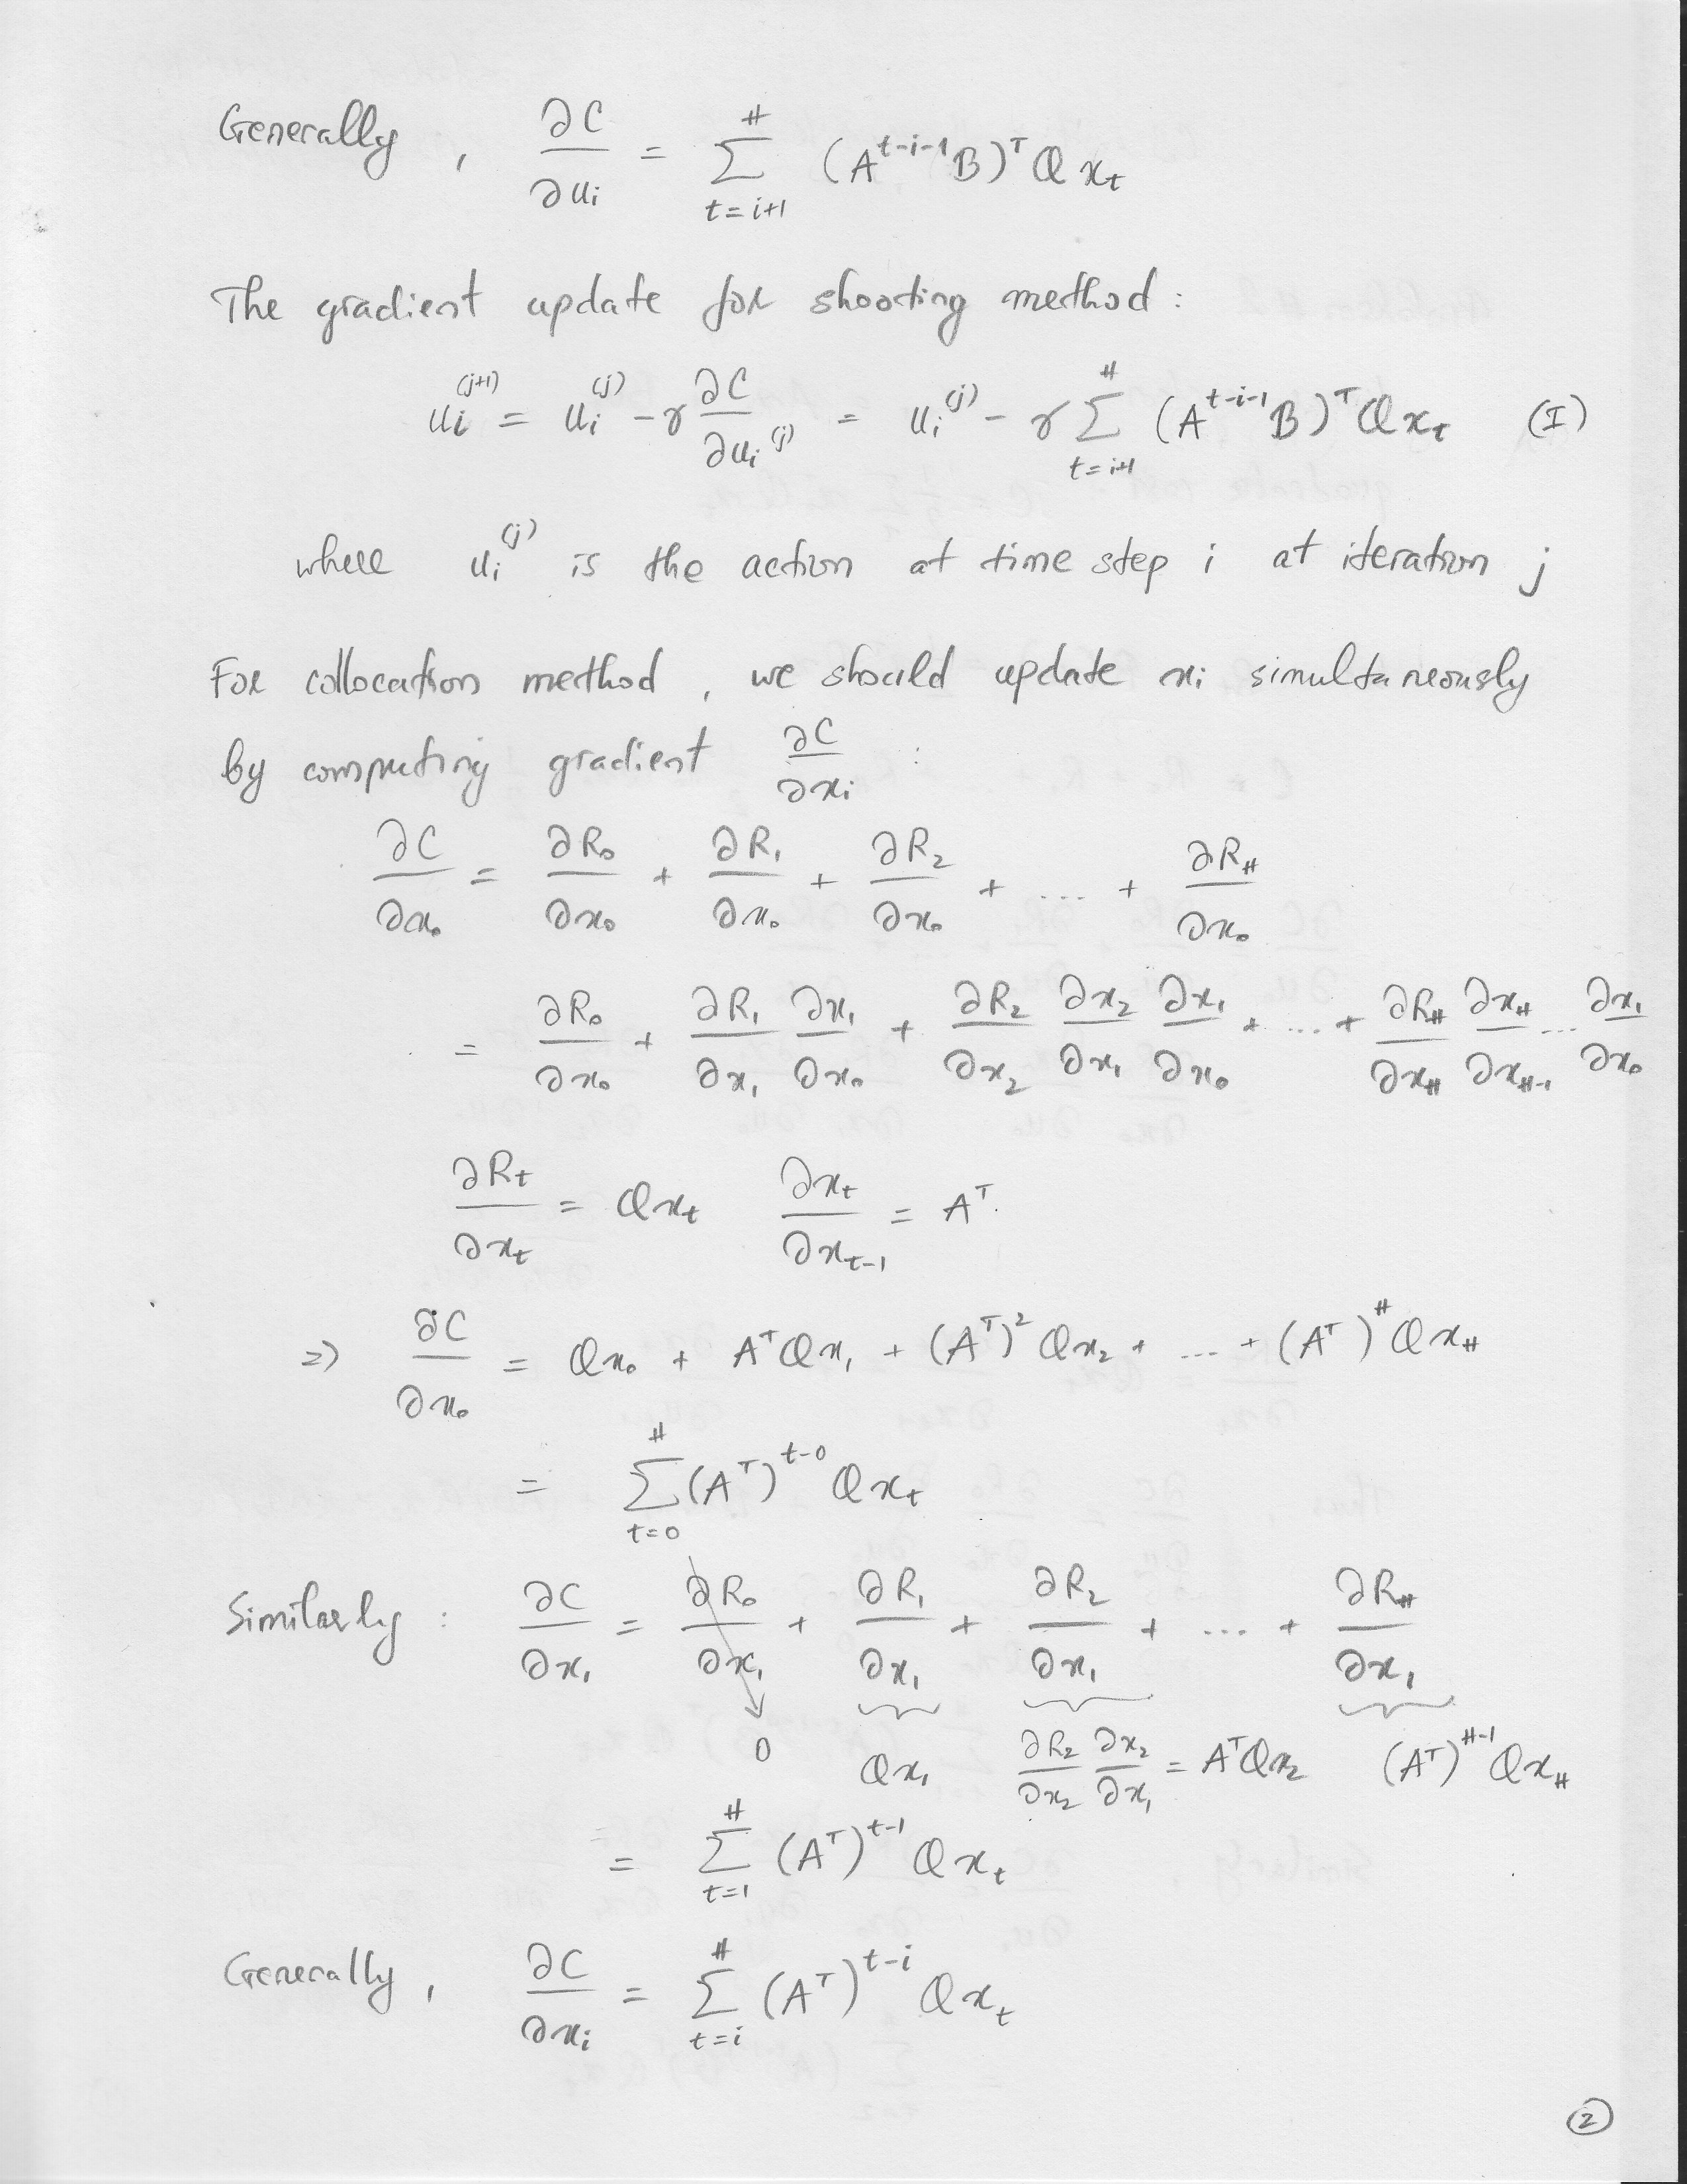 Generally, ∂C/∂u_i = Σ_{t=i+1}^{H} (A^{t-i-1}B)^T Q x_t
The gradient update for shooting method:
u_i^{(j+1)} = u_i^{(j)} - γ ∂C/∂u_i^{(j)} = u_i^{(j)} - γ Σ_{t=i+1}^{H} (A^{t-i-1}B)^T Q x_t (I)
where u_i^{(j)} is the action at time step i at iteration j
For collocation method, we should update x_i simultaneously
by computing gradient ∂C/∂x_i :
∂C/∂x_0 = ∂R_0/∂x_0 + ∂R_1/∂x_0 + ∂R_2/∂x_0 + ... + ∂R_H/∂x_0
= ∂R_0/∂x_0 + ∂R_1/∂x_1 ∂x_1/∂x_0 + ∂R_2/∂x_2 ∂x_2/∂x_1 ∂x_1/∂x_0 + ... + ∂R_H/∂x_H ∂x_H/∂x_{H-1} ... ∂x_1/∂x_0
∂R_t/∂x_t = Q x_t ∂x_t/∂x_{t-1} = A^T.
=> ∂C/∂x_0 = Q x_0 + A^T Q x_1 + (A^T)^2 Q x_2 + ... + (A^T)^H Q x_H
= Σ_{t=0}^{H} (A^T)^{t-0} Q x_t
Similarly : ∂C/∂x_1 = ∂R_0/∂x_1 + ∂R_1/∂x_1 + ∂R_2/∂x_1 + ... + ∂R_H/∂x_1
0 Q x_1 ∂R_2/∂x_2 ∂x_2/∂x_1 = A^T Q x_2 (A^T)^{H-1} Q x_H
= Σ_{t=1}^{H} (A^T)^{t-1} Q x_t
Generally, ∂C/∂x_i = Σ_{t=i}^{H} (A^T)^{t-i} Q x_t
2